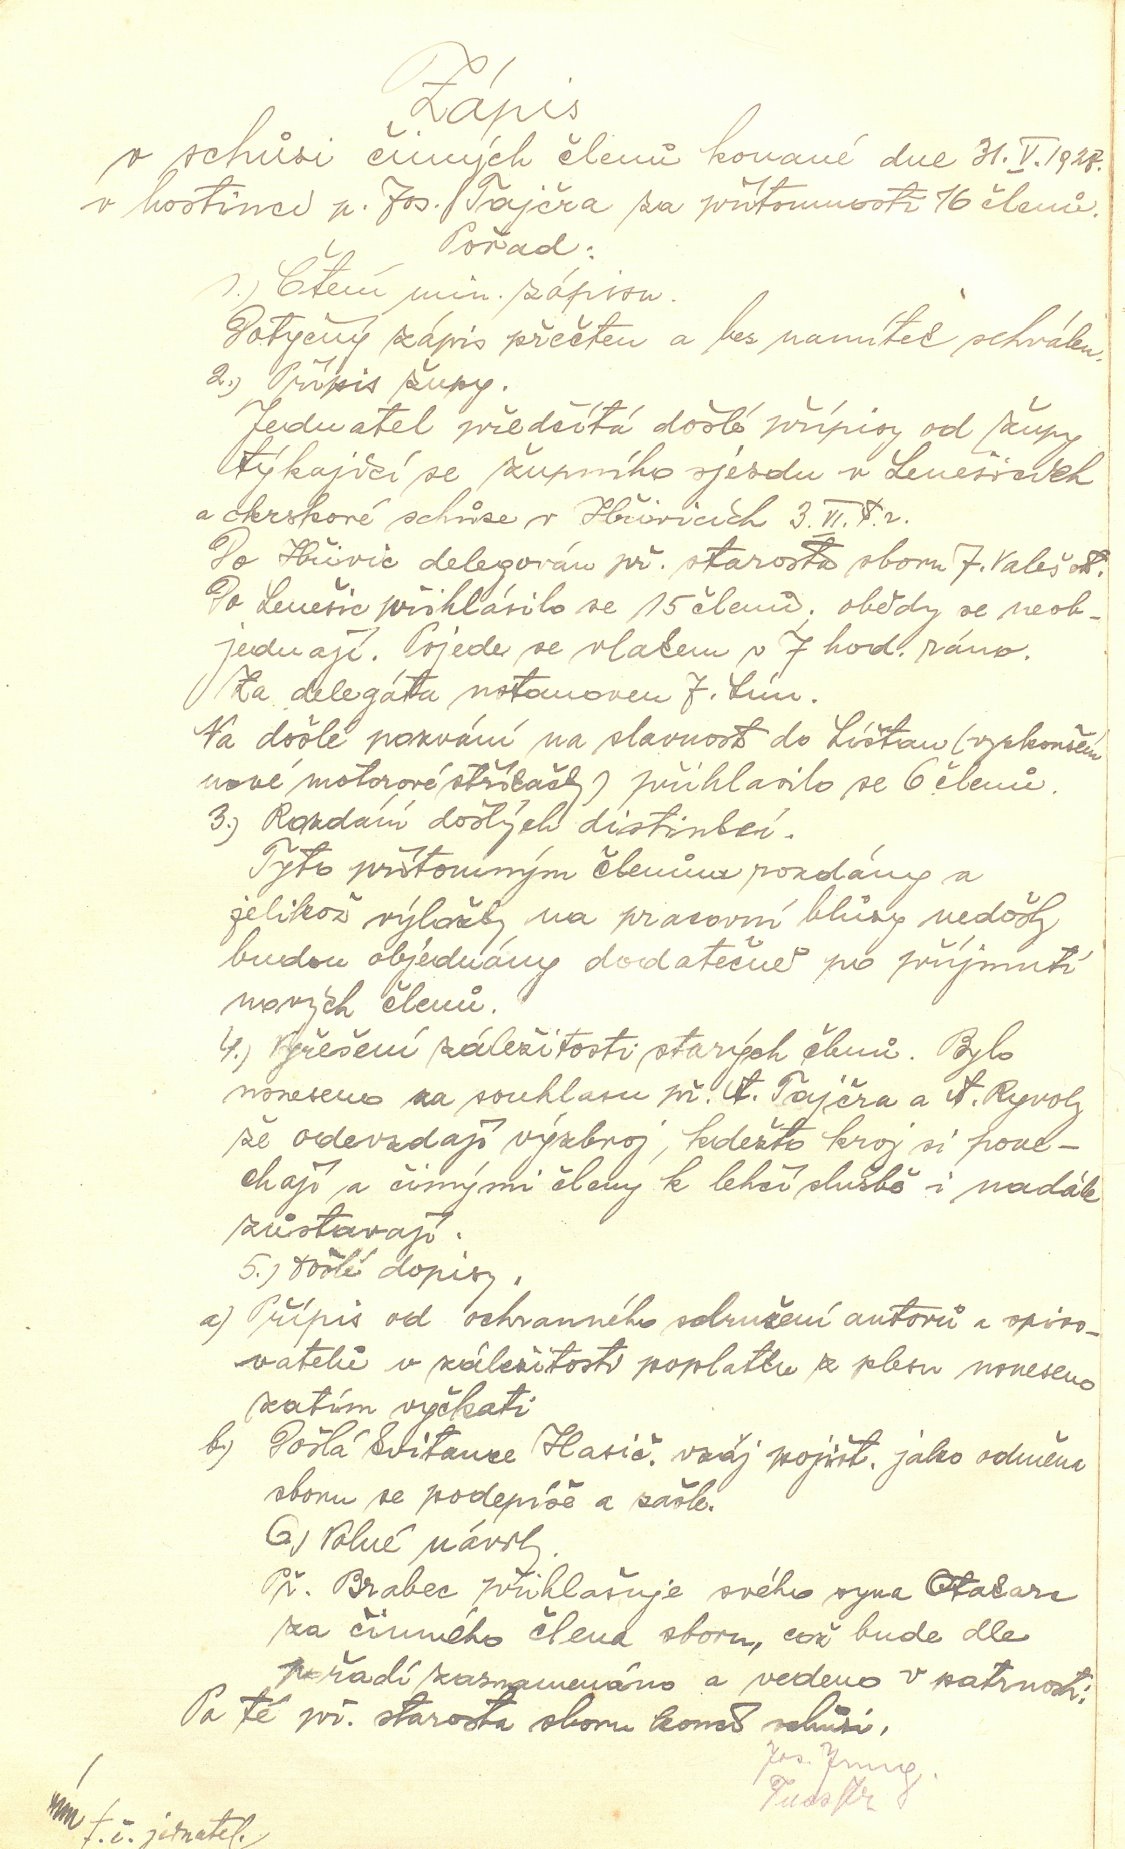 Zápis
o schůsi činných členů konané dne 31. V. 1928.
v hostinci p. Jos. Tajčra za přítomnosti 16 členů.
Pořad:
1.) Čtení min. zápisu.
Dotyčný zápis přečten a bez namítek schválen.
2.) Přípis župy.
Jednatel předčítá došlé přípisy od župy
týkající se župního sjezdu v Lenešicích
a okrskové schůze v Hřivicích 3. VI. t.r.
Do Hřivic delegován př. starosta sboru J. Valeš st.
Do Lenešic přihlásilo se 15 členů, obědy se neob-
jednají. Pojede se vlakem v 7 hod. ráno.
Za delegáta ustanoven J. Lín.
Na došlé pozvání na slavnost do Líšťan (vyzkoušení
nové motorové stříkačky) přihlasilo se 6 členů.
3.) Rozdání došlých distinkcí.
Tyto přítomným členům rozdány a
jelikož výložky na pracovní blůzy nedošly
budou objednány dodatečně po příjmutí
nových členů.
4.) Vyřešení záležitosti starých členů. Bylo
usneseno za souhlasu př. A. Tajčra a A. Ryvoly
že odevzdají výzbroj, kdežto kroj si pone-
chají a činnými členy k lehčí službě i nadále
zůstavají.
5.) Došlé dopisy.
a) Přípis od ochranného sdružení autorů a spiso-
vatelů v záležitosti poplatku z plesu usneseno
zatím vyčkati
b) Došlá kvitance Hasič. vzáj pojišť. jako odměna
sboru se podepíše a zašle.
6) Volné návrhy.
Př. Brabec přihlašuje svého syna Otakara
za činného člena sboru, což bude dle
pořadí zaznamenáno a vedeno v patrnosti.
Po té př. starosta sboru končí schůsi.
Jos. Jung.
t. č. jednatel.